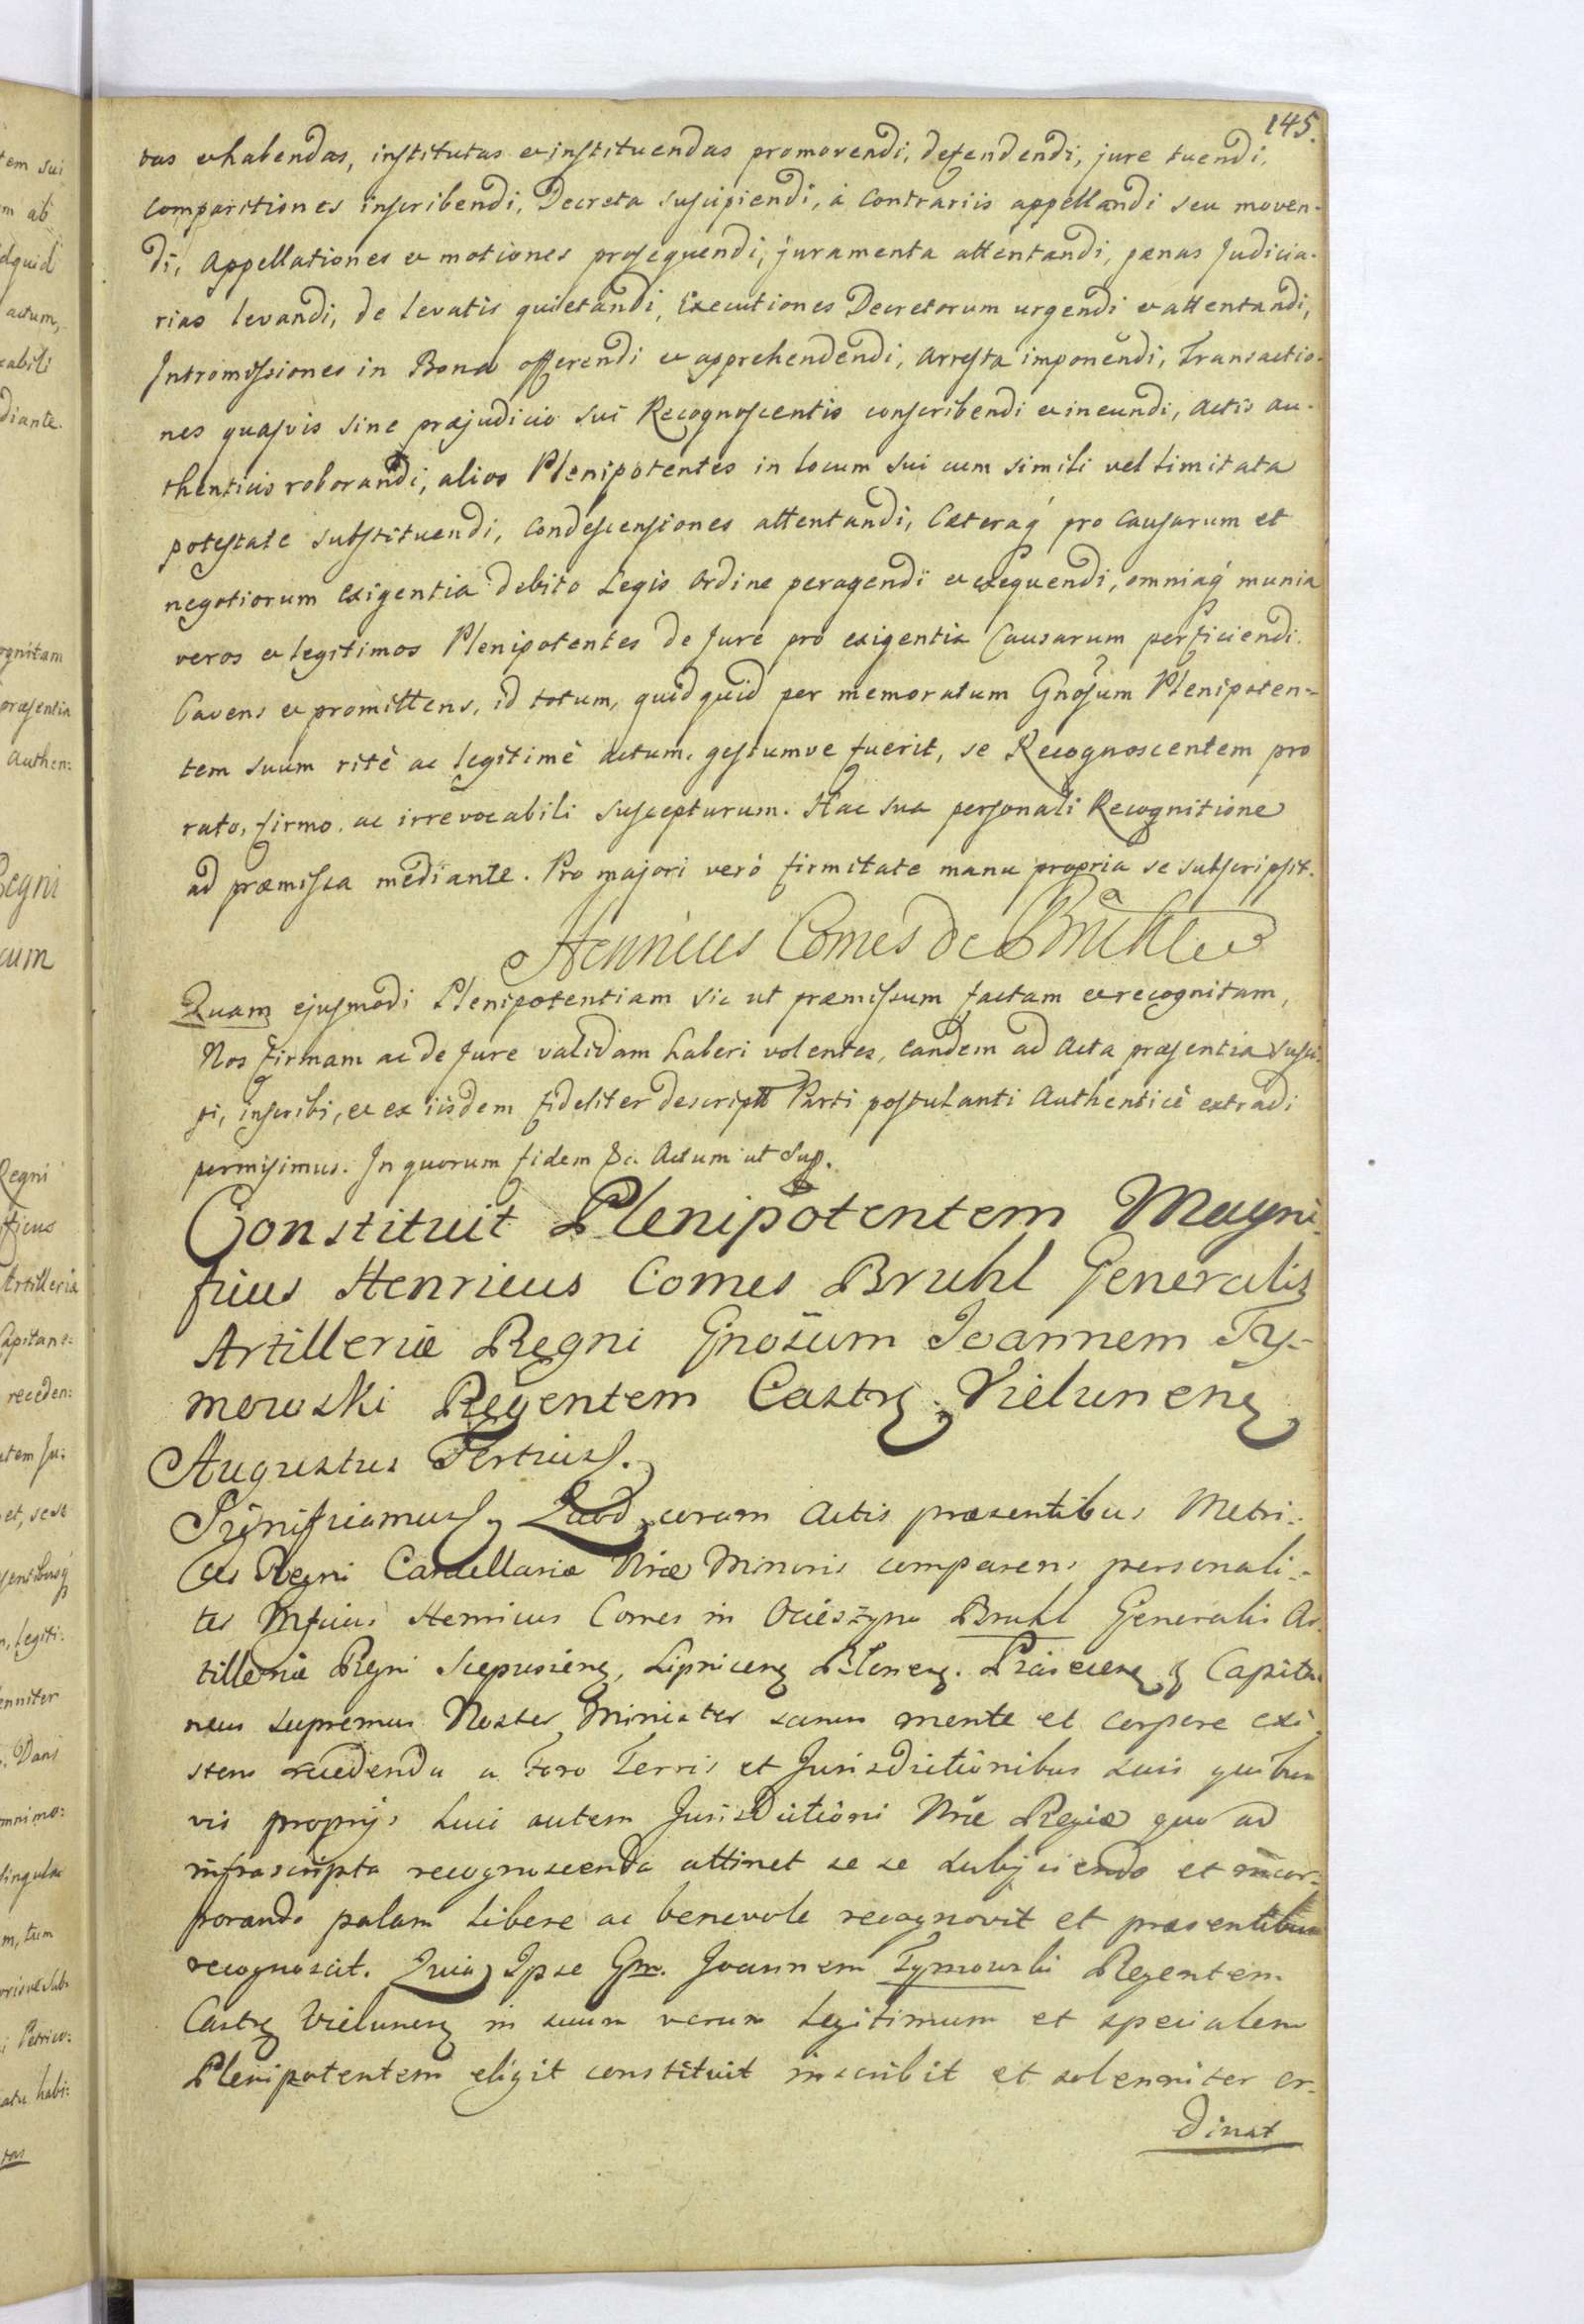 145.
tas et habendas, institutas et instituendas promovendi, defendendi, jure tuendi,
Comparitiones inscribendi, Decreta suscipiendi, à Contrariis appellandi seu moven-
di, Appellationes et motiones prosequendi, juramenta attentandi, pænas Judicia-
rias levandi, de levatis quietandi, Executiones Decretorum urgendi et attentandi,
Intromissiones in Bona offerendi et apprehendendi, Arresta imponendi, Transactio-
nes quasvis sine præjudicio sui Recognoscentis conscribendi et ineundi, actis au-
thenticis roborandi, alios Plenipotentes in locum sui cum simili vel limitata
potestate substituendi, Condescensiones attentandi, Cæteraq́ pro Causarum et
negotiorum exigentia debito Legis ordine peragendi et exequendi, omniaq́ munia
veros et legitimos Plenipotentes de Jure pro exigentia Causarum perficiendi.
Cavens et promittens, id totum, quidquid per memoratum Gnosum Plenipoten=
tem suum ritè ac legitimè actum, gestumve fuerit, se Recognoscentem pro
rato, firmo, ac irrevocabili suscepturum. Hac sua personali Recognitione
ad præmissa mediante. Pro majori verò firmitate manu propria se subscripsit.
Henricus Comes de Brühl
Quam ejusmodi Plenipotentiam sic ut præmissum factam et recognitam,
Nos firmam ac de Jure validam haberi volentes, eandem ad Acta præsentia susci-
pi, inscribi, et ex iisdem fideliter descriptã Parti postulanti Authenticè extradi
permisimus. In quorum fidem &c. Actum ut Sup.
Constituit Plenipotentem Magni-
ficus Henricus Comes Bruhl Generalis
Artilleriæ Regni Gnosum Joannem Ty-
mowski Regentem Castr. Vielunen.
Augustus Tertius.
Significamus Quod coram Actis præsentibus Metri-
ces Regni Cancellariæ Nræ Minoris comparens personali-
ter Mfcus Henricus Comes in Ocieszyno Bruhl Generalis Ar-
tilleriæ Regni Scepusien, Lipnicen Blonen. Piasecen &c Capita-
neus Supremus Noster Minister sanus mente et corpore exi-
stens recedendo a Foro Terris et Jurisdictionibus suis quibus-
vis proprijs huic autem Jurisdictioni Nræ Regiæ quo ad
infrascripta recognoscenda attinet se se subjiciendo et incor-
porando palam libere ac benevole recognovit et præsentibus
recognoscit. Quia Ipse Gm. Joannem Tymowski Regentem
Castr Vielunen in suum verum legitimum et specialem
Plenipotentem eligit constituit inscribit et solenniter or-
dinat